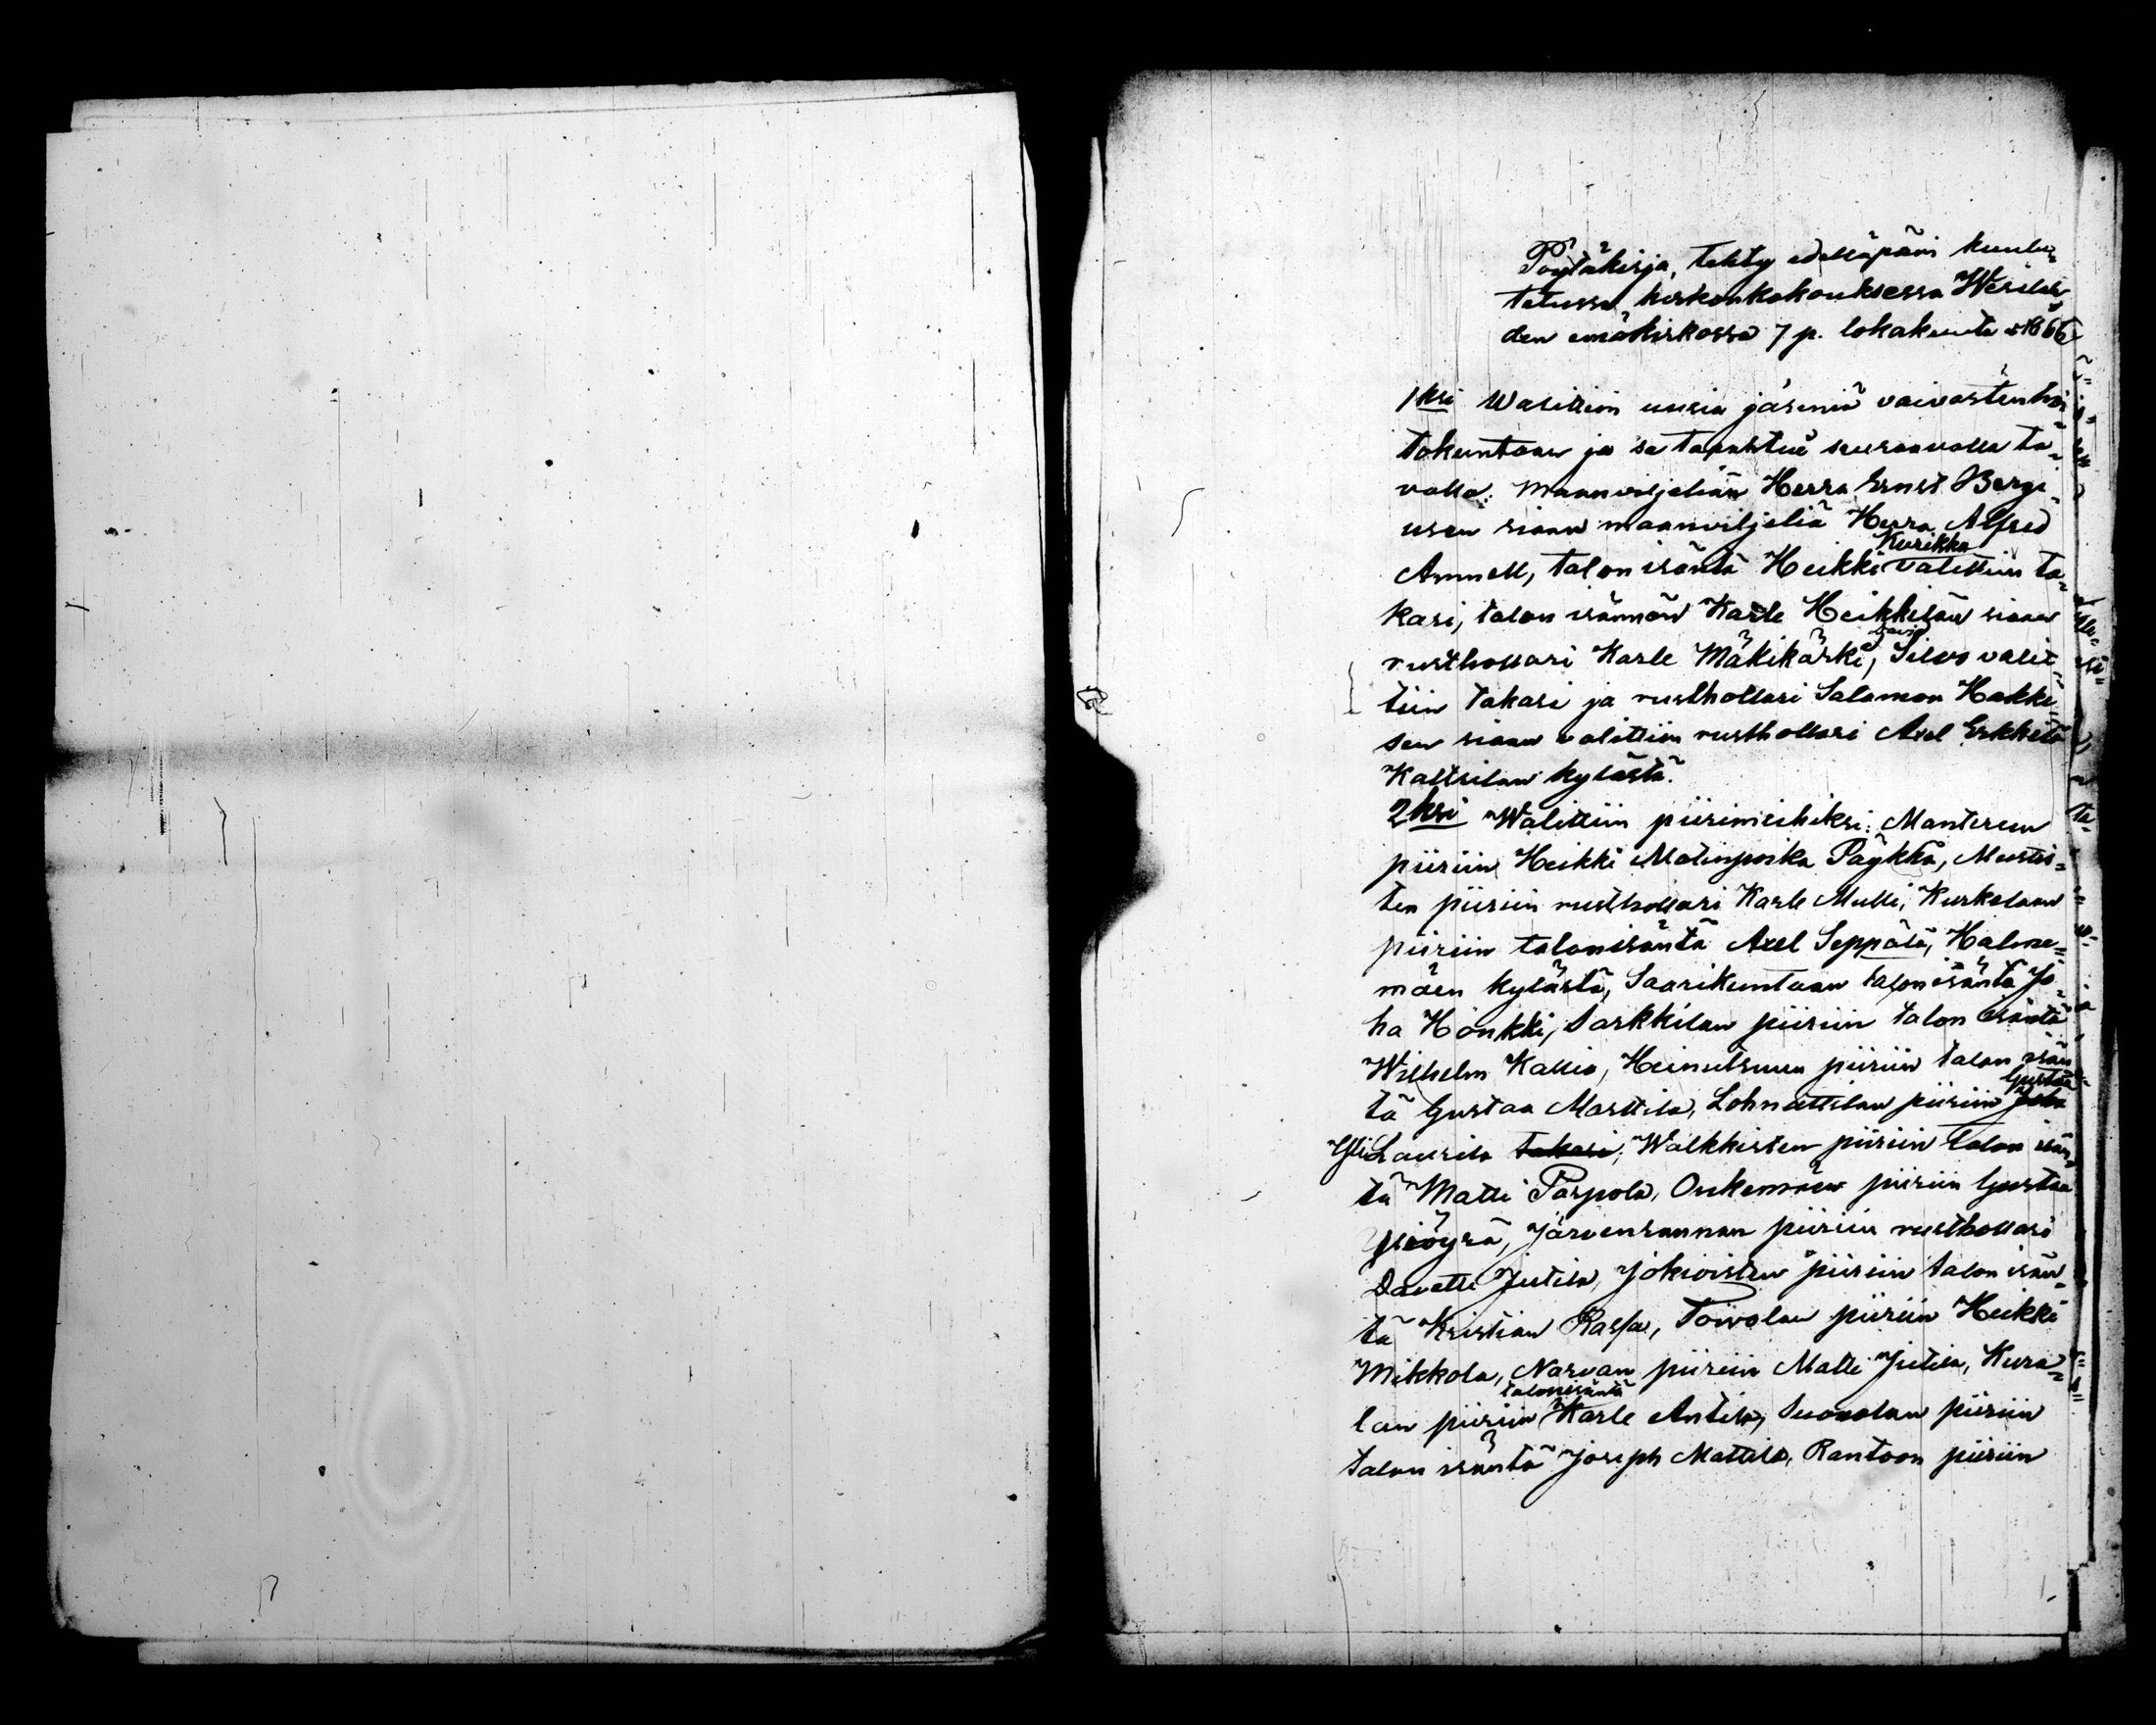 Pöytäkirja, tehty edelläpäin kuulu-
tetussa kirkonkokouksessa Wesilah-
den emäkirkossa 7 p. lokakuuta 1866
1ksi Walittiin uusia jäseniä vaivastenhoi-
tokuntaan ja se tapahtui seuraavalla ta-
valla: Maanviljeliän Herra Ernst Bergi-
usen siaan maanviljeliä Herra Alfred
Kurikka
Ammell, talon isäntä Heikki valittiin ta-
kasi, talon isännän Karle Heikkilän siaan
rusthollari Karle Mäkikärki, Silvo valit-
tiin takasi ja rusthollari Salamon Hakki-
sen siaan valittiin rusthollari Axel Erkkilä
Kaltsilan kylästä.
2ksi Walittiin piirimiehiksi: Mantereen
piiriin Heikki Matinpoika Päykkä, Mustis-
ten piiriin rusthollari Karle Mulli, Kurkelaan
piiriin talonisäntä Axel Seppälä, Halme-
mäen kylästä, Saarikuntaan talonisäntä Ju-
ha Hönkki, Sarkkilan piiriin talon isäntä
Wilhelm Kallio, Heinutsuun piiriin talon isän-
Gustaa
tä Gustaa Marttila, Lohnuttilan piiriin Juha
Yli Laurila takasi, Walkkisten piiriin talon isän-
tä Matti Parpola, Onkemäen piiriin Gustaa
Pöyrä, Järvenrannan piiriin rusthollari
Davetti Jutila, Jokioisten piiriin talon isän-
tä Kristian Rassa, Toivolan piiriin Heikki
Mikkola, Narvan piiriin Matti Jutila, Kura-
talonisäntä
lan piiriin Karle Antila, Suonolan piiriin
talon isäntä Joseph Mattila, Rantoon piiriin